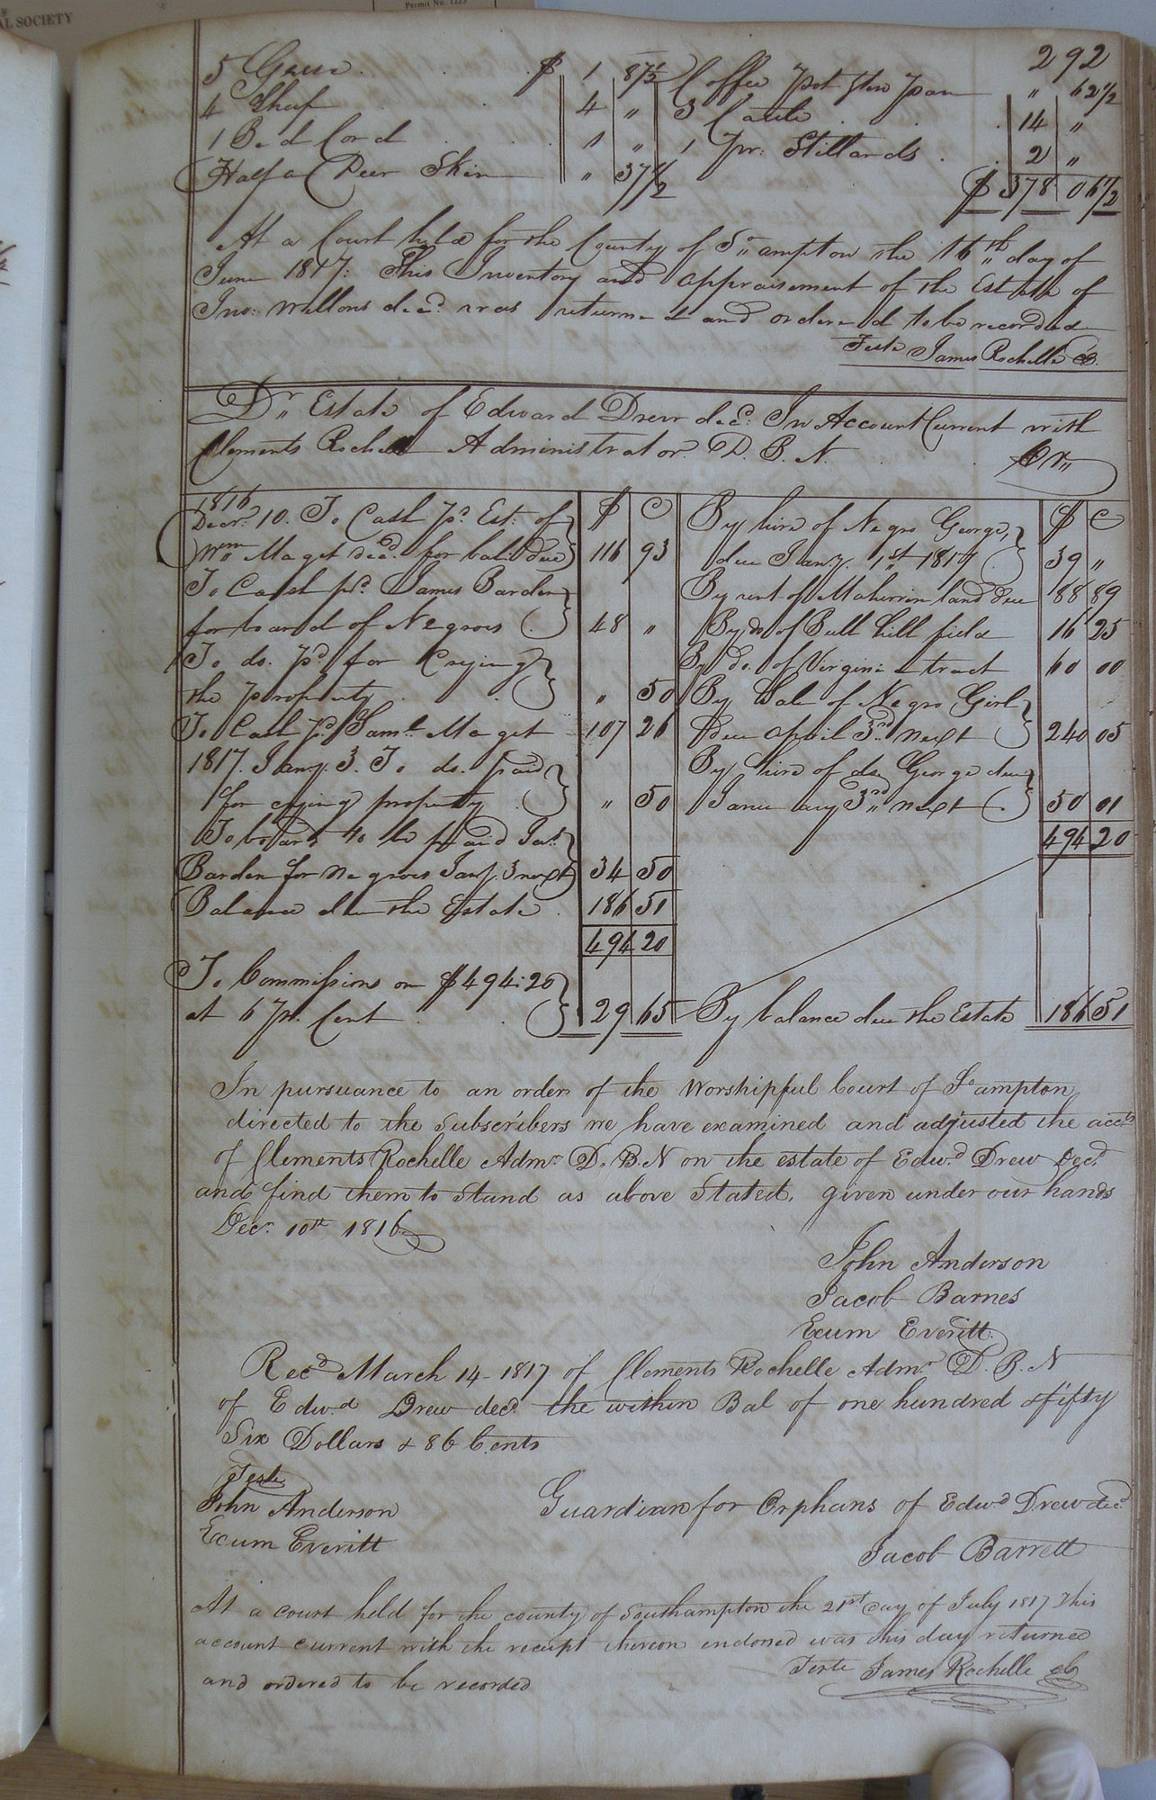 AL SOCIETY
Permit No. 1225
292
5 Geese . . $ 1 87½ Coffee pot & Stew pan " 62½
4 Sheep . . 4 " 3 Cattle . . 14 "
1 Bed Cord . . 1 " 1 pr: Stillards . . 2 "
Half a Deer Skin " 37½ $ 378 06½
At a Court held for the County of So,,ampton the 16th day of
June 1817: This Inventory and appraisement of the Estate of
Jno: Wellons decd. was returned and ordered to be recorded
Teste James Rochelle CC.
Dr,, Estate of Edward Drew decd: In Account Current with
Clements Rochelle Administrator D. B. N. Cr,,
1816 $ C $ C
Decr. 10. To Cash pd. Est: of By hire of Negro George,
Wm. Maget decd. for bal: due 116 93 due Jany. 1st 1817 39 "
To Cash pd. James Barden By rent of Meherrin land due 88 89
for board of Negroes 48 " By do. of Bull hill field 16 25
To do. pd for Crying By Do. of Virginia tract 60 00
the property . . " 50 By Sale of Negro Girl
To Cash pd. Saml. Maget 107 26 due April 3rd next 240 05
1817. Jany. 3. To do. paid By hire of do. George due
for crying property " 50 January 3rd,, next . 50 01
To board to be paid Jas. 494 20
Barden for negroes Jany. 3 next 34 50
Balance due the Estate . 186 51
494 20
To Commissions on $494.20
at 6 pr. Cent . 29 65 By balance due the Estate 186 51
In pursuance to an order of the Worshipful Court of So ampton
directed to the Subscribers we have examined and adjusted the accts
of Clements Rochelle Admr. D. B. N on the estate of Edwd. Drew Decd.
and find them to Stand as above Stated. given under our hands
Decr. 10th 1816
John Anderson
Jacob Barnes
Exum Everitt
Recd March 14 - 1817 of Clements Rochelle Admr. D. B. N
of Edwd Drew decd. the within Bal of one hundred & fifty
Six Dollars & 86 Cents
Teste
John Anderson Guardian for Orphans of Edwd Drew decd.
Exum Everitt
Jacob Barrett
At a court held for the county of Southampton the 21st day of July 1817 This
account current with the receipt thereon indorsed was this day returned
and ordered to be recorded Teste James Rochelle cc